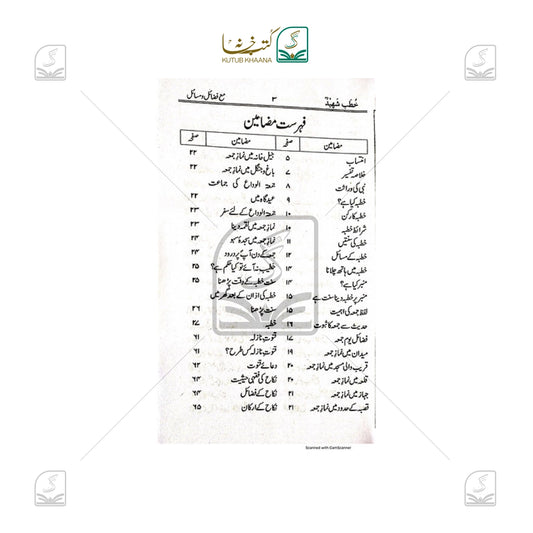 کتب خانہ
KUTUB KHAANA
خطب شهیۃ ۳ مع فضائل ومسائل
فہرست مضامین
مضامین صفحہ
انتساب ۵
خلاصہ تفسیر ۷
نبی کی وراثت ۸
خطبہ کیا ہے؟ ۹
خطبہ کا رکن ۱۰
شرائط خطبہ ۱۰
خطبہ کی سنتیں ۱۱
خطبہ کے مسائل ۱۲
خطبہ میں ہاتھ چلانا ۱۳
منبر کیا ہے؟ ۱۴
منبر پر خطبہ دینا سنت ہے ۱۵
لفظ جمعہ کی اہمیت ۱۵
حدیث سے جمعہ کا ثبوت ۱۶
فضائل یوم جمعہ ۱۷
میدان میں نماز جمعہ ۱۹
قریب والی مسجد میں نماز جمعہ ۲۰
قلعہ میں نماز جمعہ ۲۰
جہاز میں نماز جمعہ ۲۱
قصبہ کے حدود میں نماز جمعہ ۲۱
مضامین صفحہ
جیل خانہ میں نماز جمعہ ۲۲
باغ و جنگل میں نماز جمعہ ۲۲
جمعۃ الوداع کی جماعت
عیدگاہ میں ۲۲
جمعۃ الوداع کے لئے سفر ۲۳
نماز جمعہ میں لقمہ دینا ۲۳
نماز جمعہ میں سجدہ سہو ۲۴
جمعہ کے دن آپ پر درود ۲۴
خطیب نہ آئے تو کیا حکم ہے؟ ۲۵
سنت خطبہ کے وقت پڑھنا ۲۵
خطبہ کی اذان کے بعد گھر میں
سنت پڑھنا ۲۶
خطبہ ۲۷
قنوت نازلہ ۶۱
قنوت نازلہ کس طرح؟ ۶۱
دعائے قنوت ۶۲
نکاح کی فقہی حیثیت ۶۳
نکاح کے فضائل ۶۴
نکاح کے ارکان ۶۵
Scanned with CamScanner